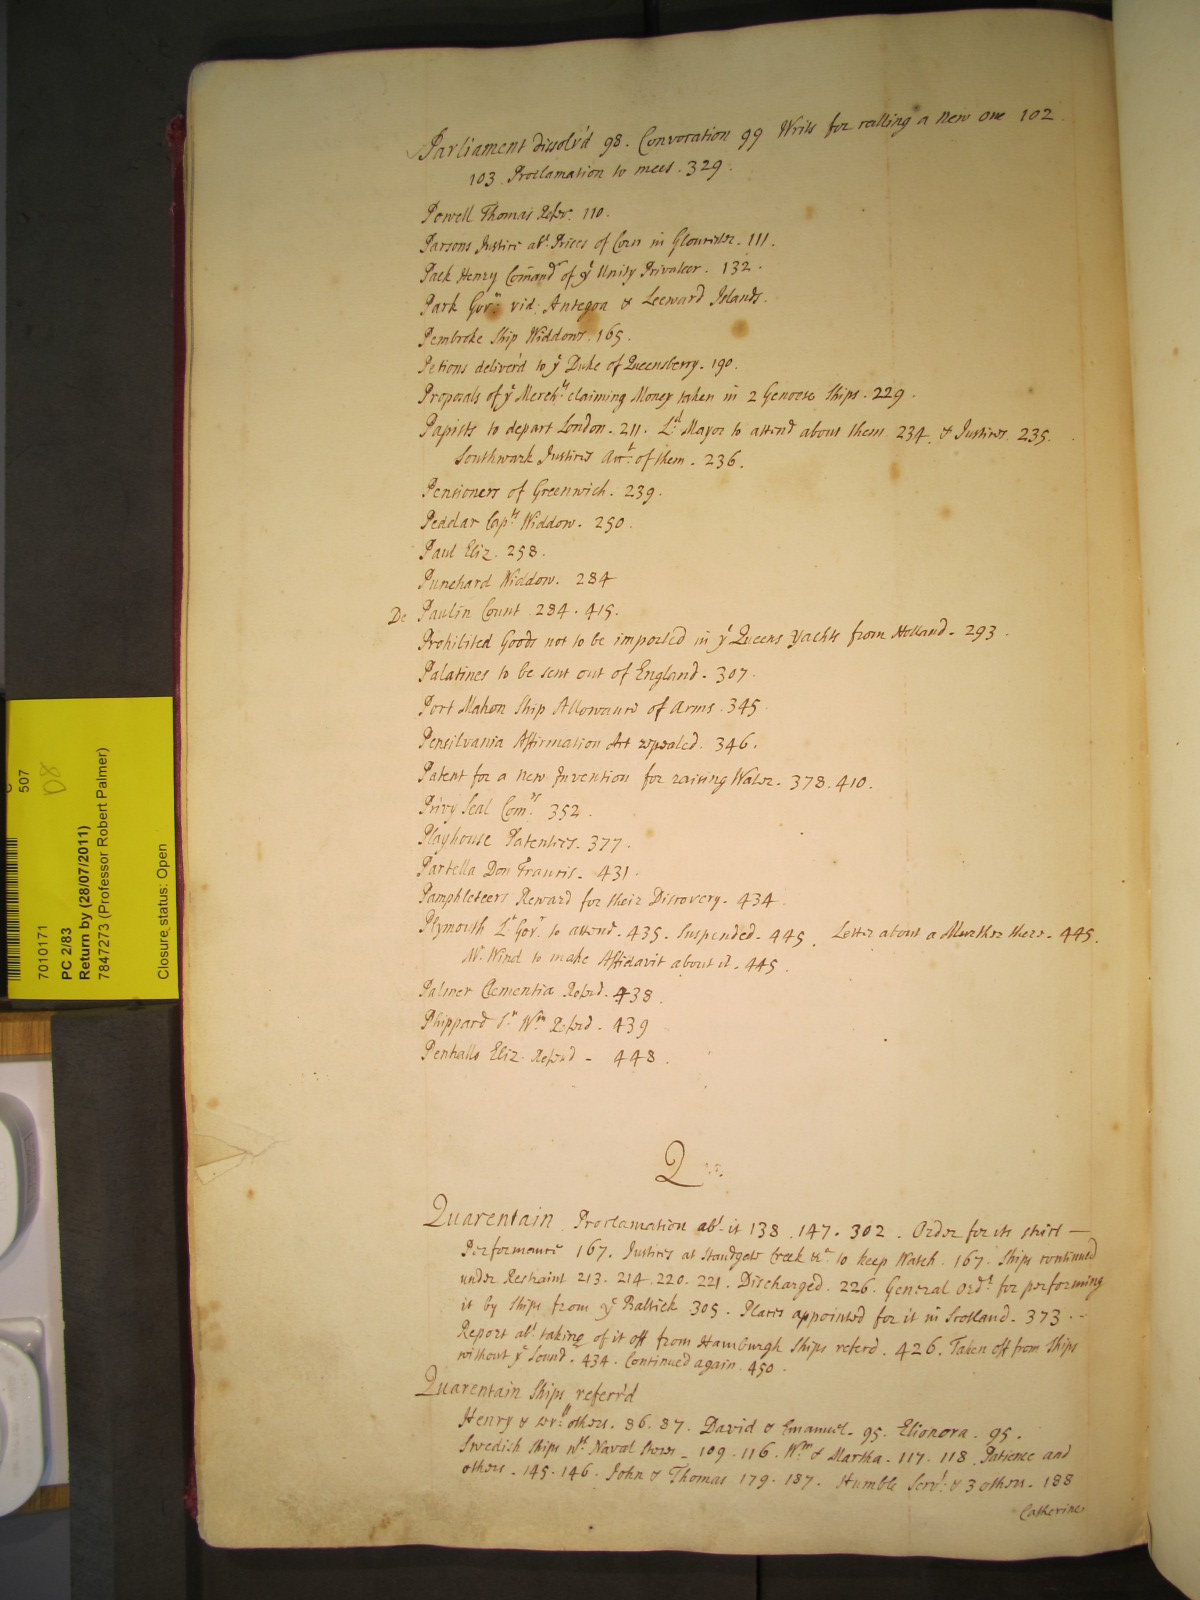 Parliament dissolv'd 98. Convocation 99 Writs for calling a New one 102
103. Proclamation to meet. 329.
Powell Thomas Refer. 110.
Parsons Justice abt. Prices of Corn in Glourister. 111.
Pack Henry Comandr of ye Unity Privateer. 132.
Park Govr. vid: Antegoa & Leeward Islands.
Pembroke Ship Widdows. 165.
Petions deliver'd to ye Duke of Queensberry. 190.
Proposals of ye Mercht. claiming Money taken in 2 Genoese Ships. 229.
Papists to depart London. 211. Ld. Mayor to attend about them 234. & Justices. 235.
Southwark Justices Acct. of them. 236.
Pensioners of Greenwich. 239.
Peddar Capts Widdow. 250.
Paul Eliz. 258.
Punchard Widdow. 284
De Paulin Count 284. 415.
Prohibited Goods not to be imported in ye Queens Yachts from Holland. 293.
Palatines to be sent out of England. 307.
Port Mahon Ship Allowance of Arms. 345
Pensilvania Affirmation Act repealed. 346.
Patent for a new Invention for raising Water. 378. 410.
Privy Seal Comrs. 352.
Playhouse Patentees. 377.
Partella Don Francis. 431.
Pamphleteers Reward for their Discovery. 434
Plymouth Lt. Govr. to attend. 435. Suspended. 445. Letter about a Murther there. 445.
Mr. Wind to make Affidavit about it. 445.
Palmer Clementia Referd. 438.
Phippard Sr. Wm. Referd. 439
Penhallo Eliz. Referd - 448.
Q
Quarentain. Proclamation abt. it 138. 147. 302. Order for its strict —
Performance 167. Justices at Standgate Creek &c. to keep Watch. 167. Ships continued
under Restraint 213. 214. 220. 221. Discharged. 226. General Ordr. for performing
it by Ships from ye Baltick 305. Places appointed for it in Scotland. 373. -
Report abt. taking of it off from Hamburgh Ships referd. 426. Taken off from Ships
without ye Sound. 434. Continued again. 450.
Quarentain Ships referr'd
Henry & sevrll others. 86. 87. David & Emanuel. 95. Elionora. 95.
Swedish Ships wth. Naval Stores - 109. 116. Wm. & Martha. 117. 118. Patience and
others. 145. 146. John & Thomas 179. 187. Humble Servt. & 3 others. 188
Catherine
507
D8
7010171
PC 2/83
Return by (28/07/2011)
7847273 (Professor Robert Palmer)
Closure status: Open